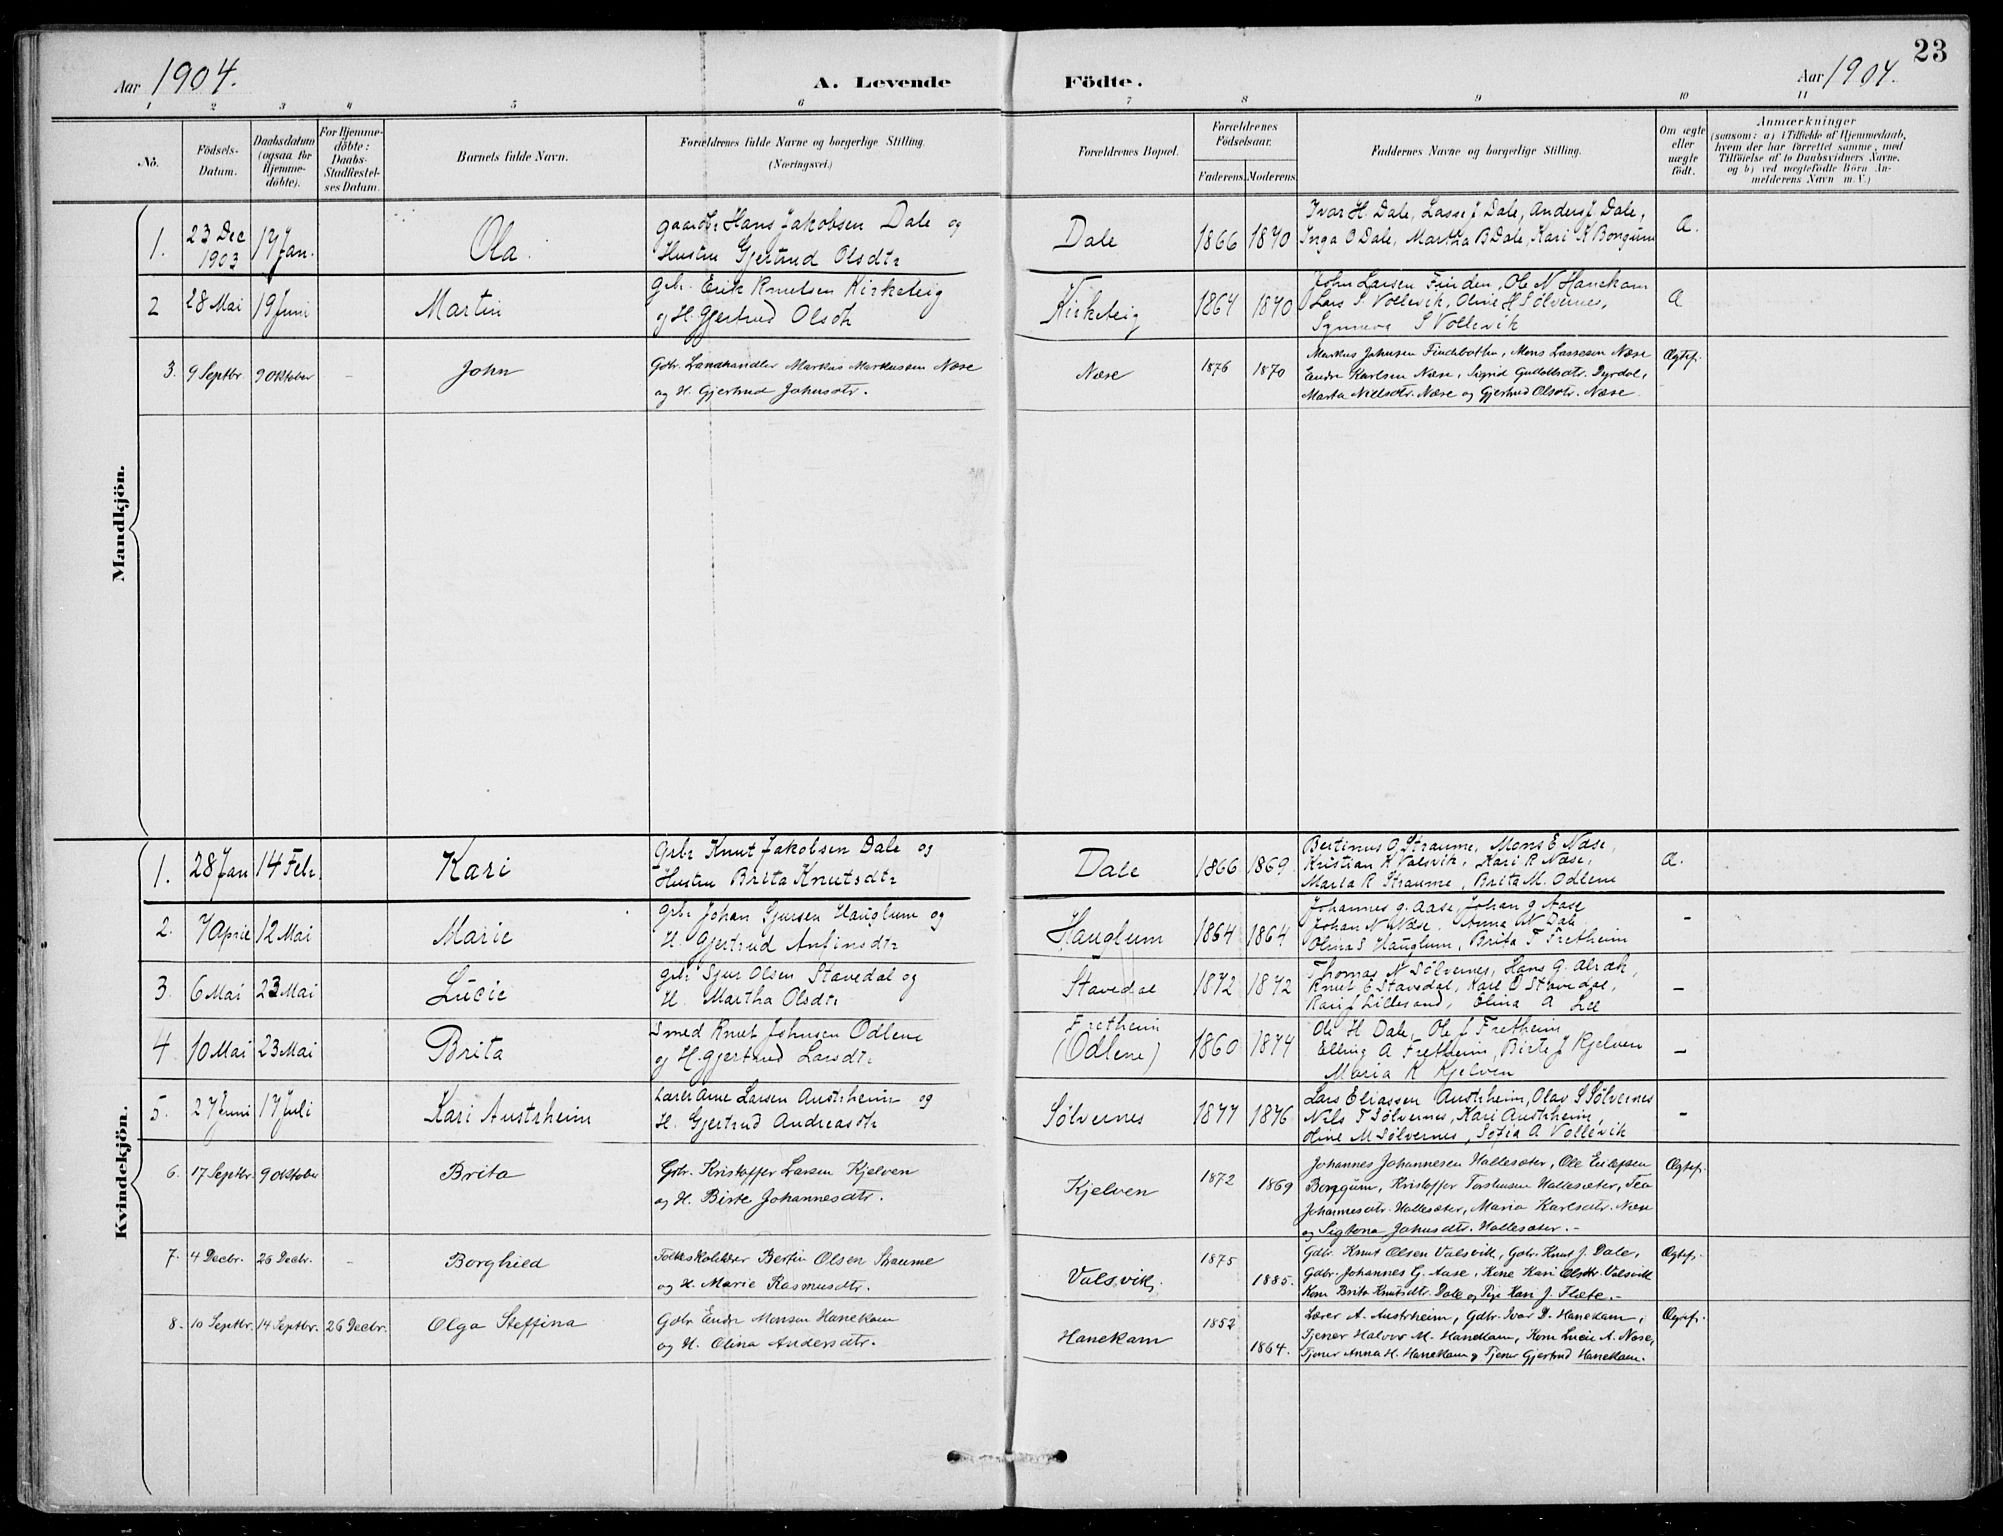 23
Aar 1904.
A. Levende Födte.
Aar 1904.
1 2 3 4 5 6 7 8 9 10 11
No.
Födsels-Datum.
Daabsdatum (ogsaa for Hjemme-döbte).
For Hjemme-döbte: Daabs-Stadfæstel-ses Datum.
Barnets fulde Navn.
Forældrenes fulde Navne og borgerlige Stilling. (Næringsvei.)
Forældrenes Bopæl.
Forældrenes Födselsaar.
Faderens. Moderens.
Faddernes Navne og borgerlige Stilling.
Om ægte eller uægte födt.
Anmærkninger (saasom: a) i Tilfælde af Hjemmedaab, hvem der har forrettet samme, med Tilföielse af to Daabsvidners Navne, og b) ved uægtefödte Börn An-melderens Navn m. V.)
Mandkjön.
1. 23 Dec 1903 17 Jan. Ola. gaardbr Hans Jakobsen Dale og
Hustru Gjertrud Olsdtr
Dale 1866 1870
Ivar H. Dale, Lasse J Dale, Anders J. Dale,
Inga O Dale, Martha B Dale, Kari K Bongum
a.
2 28 Mai 19 Juni Martin
Gbr. Erik Knutsen Kirketeig
og H. Gjertrud Olsdtr
Kirketeig 1864 1870
John Larsen Finden, Ole N Hanekam
Lars S. Vollevik, Oline H Sølvernes,
Synneva S Vollevik
a
3. 9 Septbr. 9 Oktober - John
Gdbr. Landhandler Markus Markussen Næse
og H. Gjertrud Johnsdtr.
Næse 1876 1870
Markus Johnsen Findebotten, Mons Lassesen Næse
Endre Karlsen Næse, Sigrid Dyrdal,
Marta Nielsdtr. Næse og Gjertrud Olsdtr. Næse.
Ægtef.
Kvindekjön.
1. 28 Jan 14 Febr. Kari
Grbr Knut Jakobsen Dale og
Hustru Brita Knutsdtr
Dale 1866 1869
Bertinus O Straume, Mons E Næse,
Kristian K Valsvik, Kari R Næse,
Maria R Straume, Brita M. Odlene
a.
2. 7 April 12 Mai Marie
Grbr Johan Sjursen Hauglum og
H. Gjertrud Anfinsdtr
Hauglum 1864 1864
Johannes g. Aase, Johan g Aase
Johan N Næse, Anna N Dale
Olina S Hauglum, Brita T Fretheim
-
3. 6 Mai 23 Mai Lucie
grbr Sjur Olsen Stavedal og
H. Martha Olsdtr
Stavedal 1872 1872
Thomas N Sølvernes, Hans g.
Knut E Stavedal, Karl O Stavedal,
Kari J Lillesand, Elina A Lee
-
4. 10 Mai 23 Mai Brita
Smed Knut Johnsen Odlene
og H. Gjertrud Larsdtr
Fretheim
(Odlene) 1860 1874
Ole H Dale, Ole J Fretheim
Elling A Fretheim, Birte J Kjelven
Maria K Kjelven
-
5. 27 Juni 17 Juli Kari Austrheim
Lærer Arne Larsen Austrheim og
H. Gjertrud Andreasdtr
Sølvernes 1877 1876
Lars Eliassen Austrheim, Olav S Sølvernes
Nils T Sølvernes, Kari Austrheim,
Oline M Sølvernes, Sofia A Vollevik
-
6. 17 Septbr. 9 Oktober Brita
Gbr. Kristoffer Larsen Kjelven
og H. Birte Johannesdtr.
Kjelven 1872 1869
Johannes Johannesen Hallesæter, Ole
Bongum, Kristoffer Hallesæter,
Johannesdtr. Hallesæter, Maria Karlsdtr. Næse
og Johnsdtr. Hallesæter. -
Ægtef.
7. 4 Decbr. 26 Decbr. - Borghild
Folkeskolelærer Bertin Olsen Straume
og H. Marie Rasmusdtr.
Valsvik. 1875 1885.
Gdbr. Knut Olsen Valsvik, Gdbr. Knut J. Dale,
Gdbr. Johannes G. Aase, Kone Kari Olsdtr. Valsvik
Kone Brita Knutsdtr. Dale og Pige Kari J. Flete. -
Ægtef.
8. 10 Septbr. 14 Septbr. 26 Decbr. Olga Steffina
Gdbr Endre Monsen Hanekam
og H. Olina Andersdtr.
Hanekam 1852 1864.
Lærer A. Austrheim, Gdbr. Ivar D. Hanekam,
Tjener Halvor M. Hanekam, Kone Lucie A. Næse,
Tjener Anna H. Hanekam og Tjener Gjertrud Hanekam.
Ægtef.